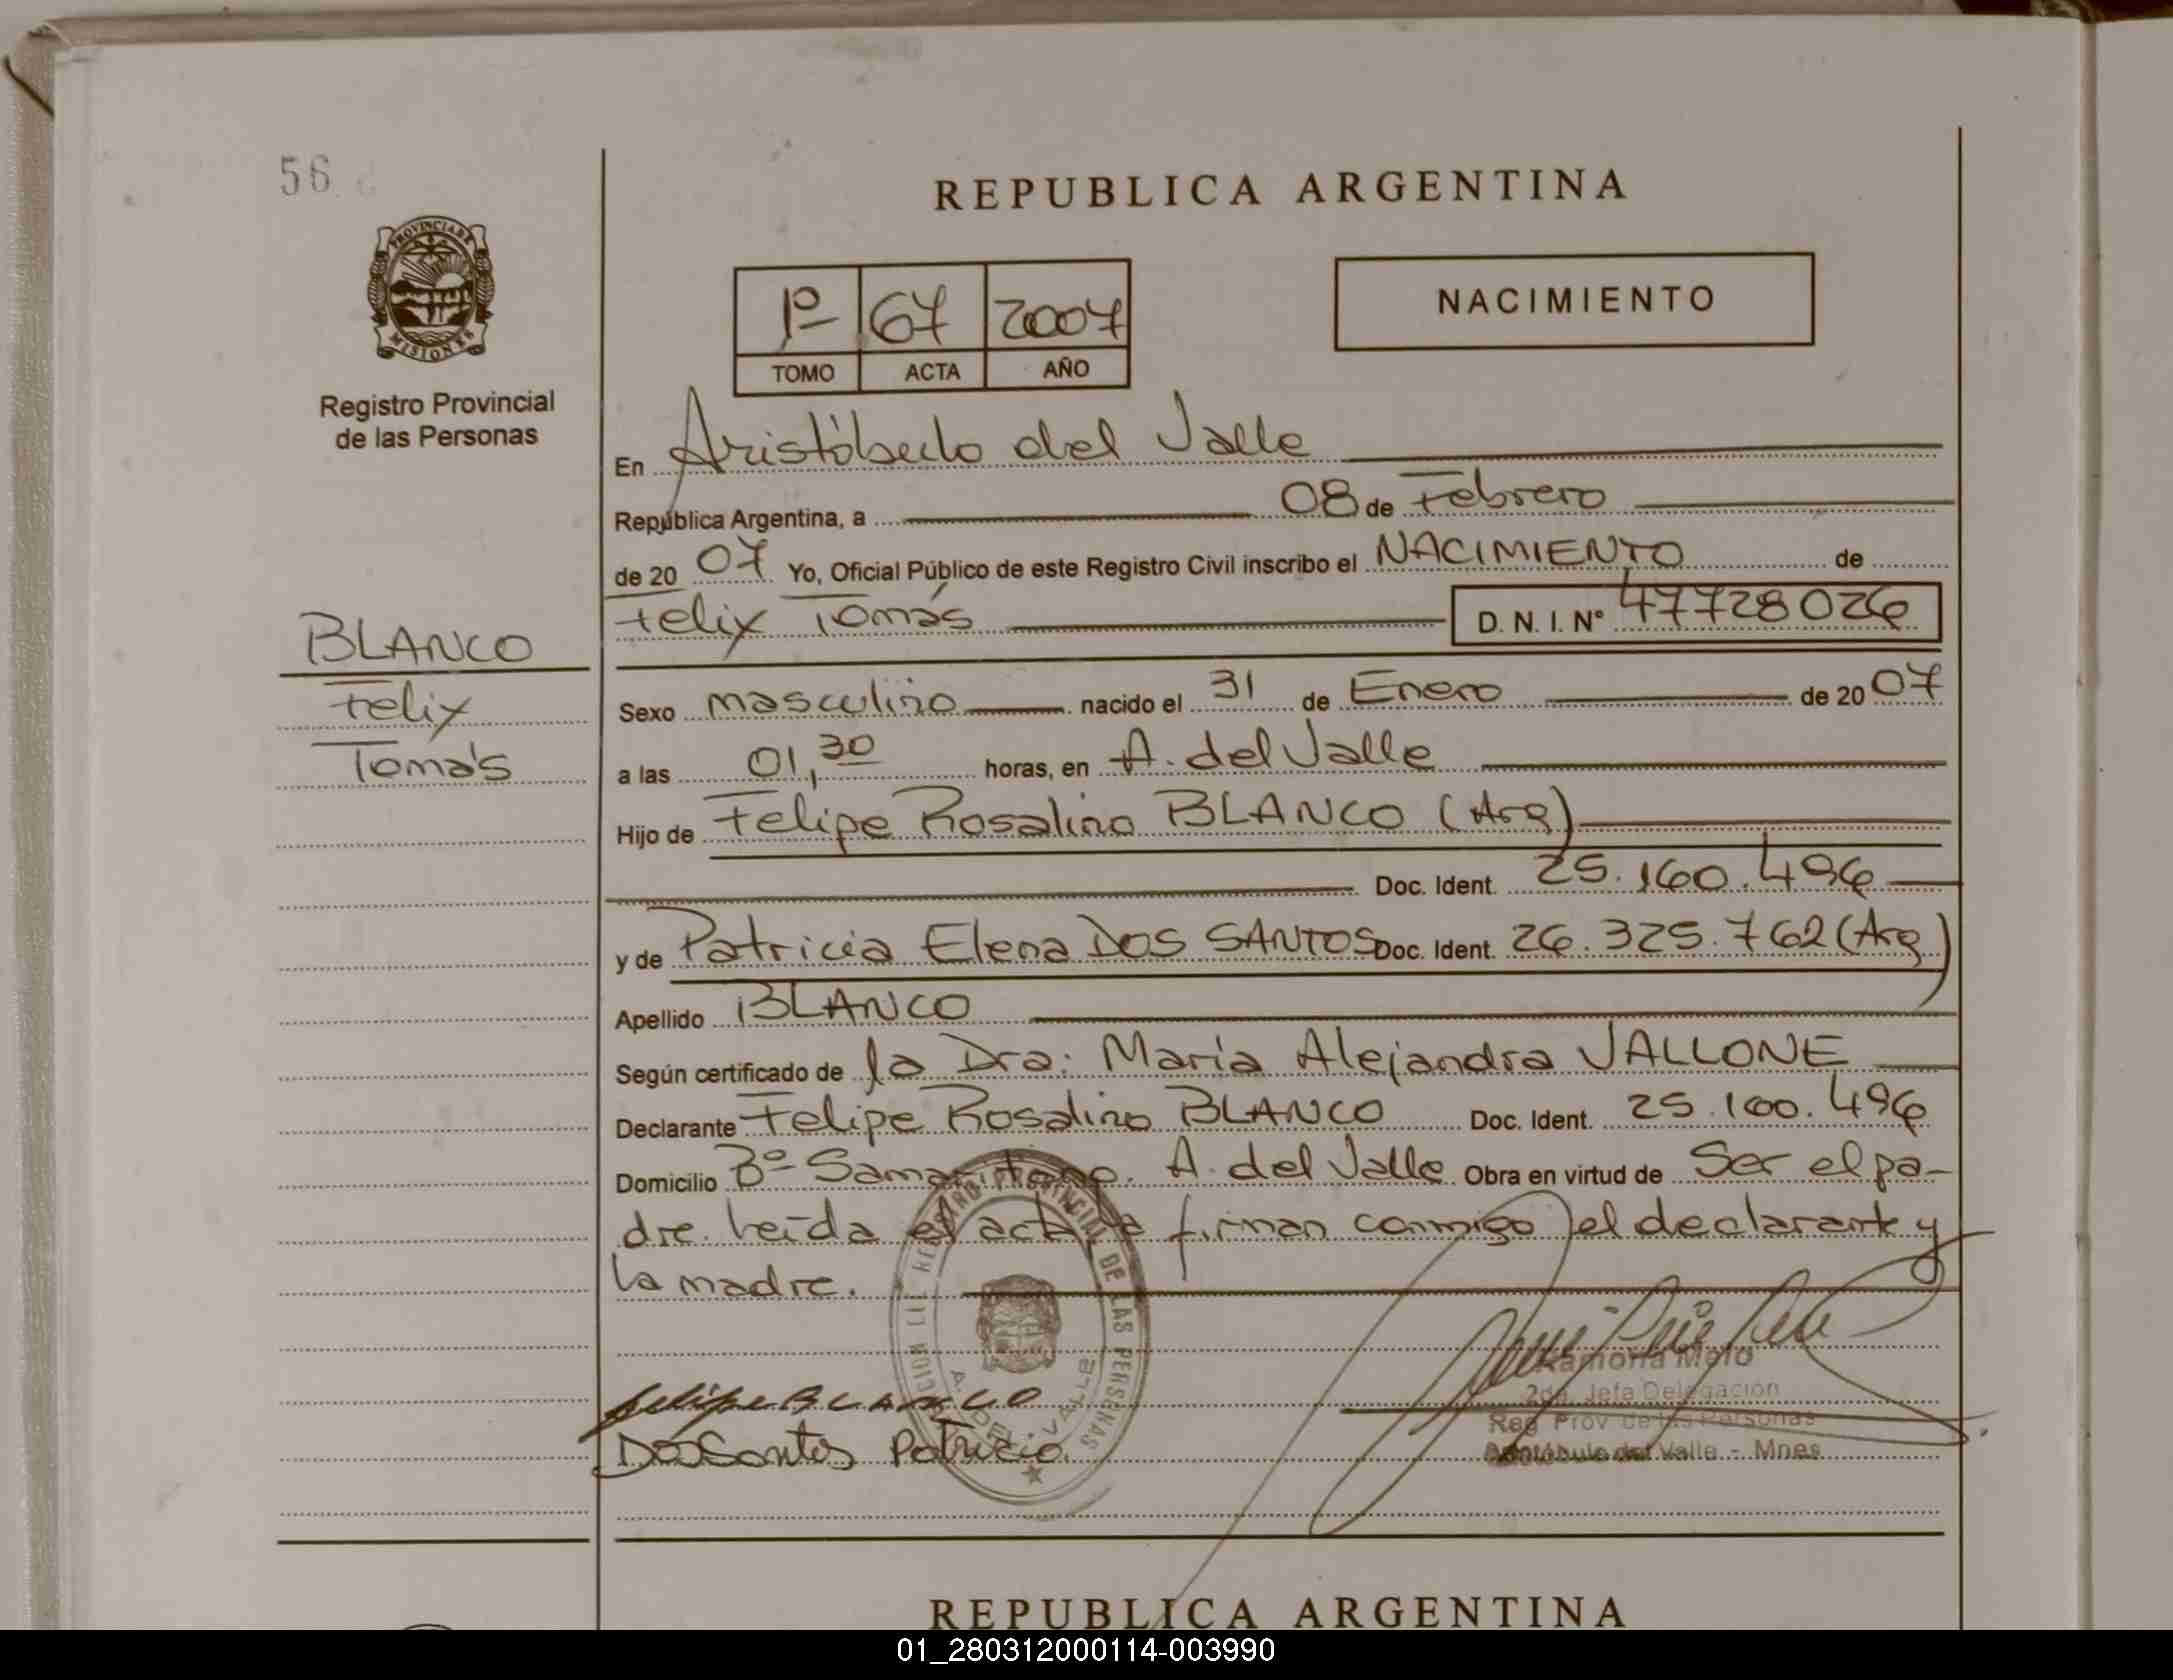 56
PROVINCIA DE
MISIONES
Registro Provincial
de las Personas
BLANCO
Felix
Tomás
REPUBLICA ARGENTINA
1º 67 2007
TOMO ACTA AÑO
NACIMIENTO
En Aristóbulo del Valle
República Argentina, a 08 de Febrero
de 20 07 Yo, Oficial Público de este Registro Civil inscribo el NACIMIENTO de
Felix Tomás D. N. I. Nº 47728026
Sexo masculino nacido el 31 de Enero de 20 07
a las 01,30 horas, en A. del Valle
Hijo de Felipe Rosalino BLANCO (Arg)
Doc. Ident. 25.160.496
y de Patricia Elena DOS SANTOS Doc. Ident. 26.325.762 (Arg)
Apellido BLANCO
Según certificado de la Dra: María Alejandra VALLONE
Declarante Felipe Rosalino BLANCO Doc. Ident. 25.160.496
Domicilio Bº Samaritano. A. del Valle Obra en virtud de Ser el pa-
dre. Leída el acta, firman conmigo el declarante y
la madre.
REGISTRO PROVINCIAL DE LAS PERSONAS
A. DEL VALLE
Felipe BLANCO
Dos Santos Patricia.
Ramona Melo
2da. Jefa Delegación
Reg. Prov de las Personas
Aristóbulo del Valle - Mnes
REPUBLICA ARGENTINA
01_280312000114-003990